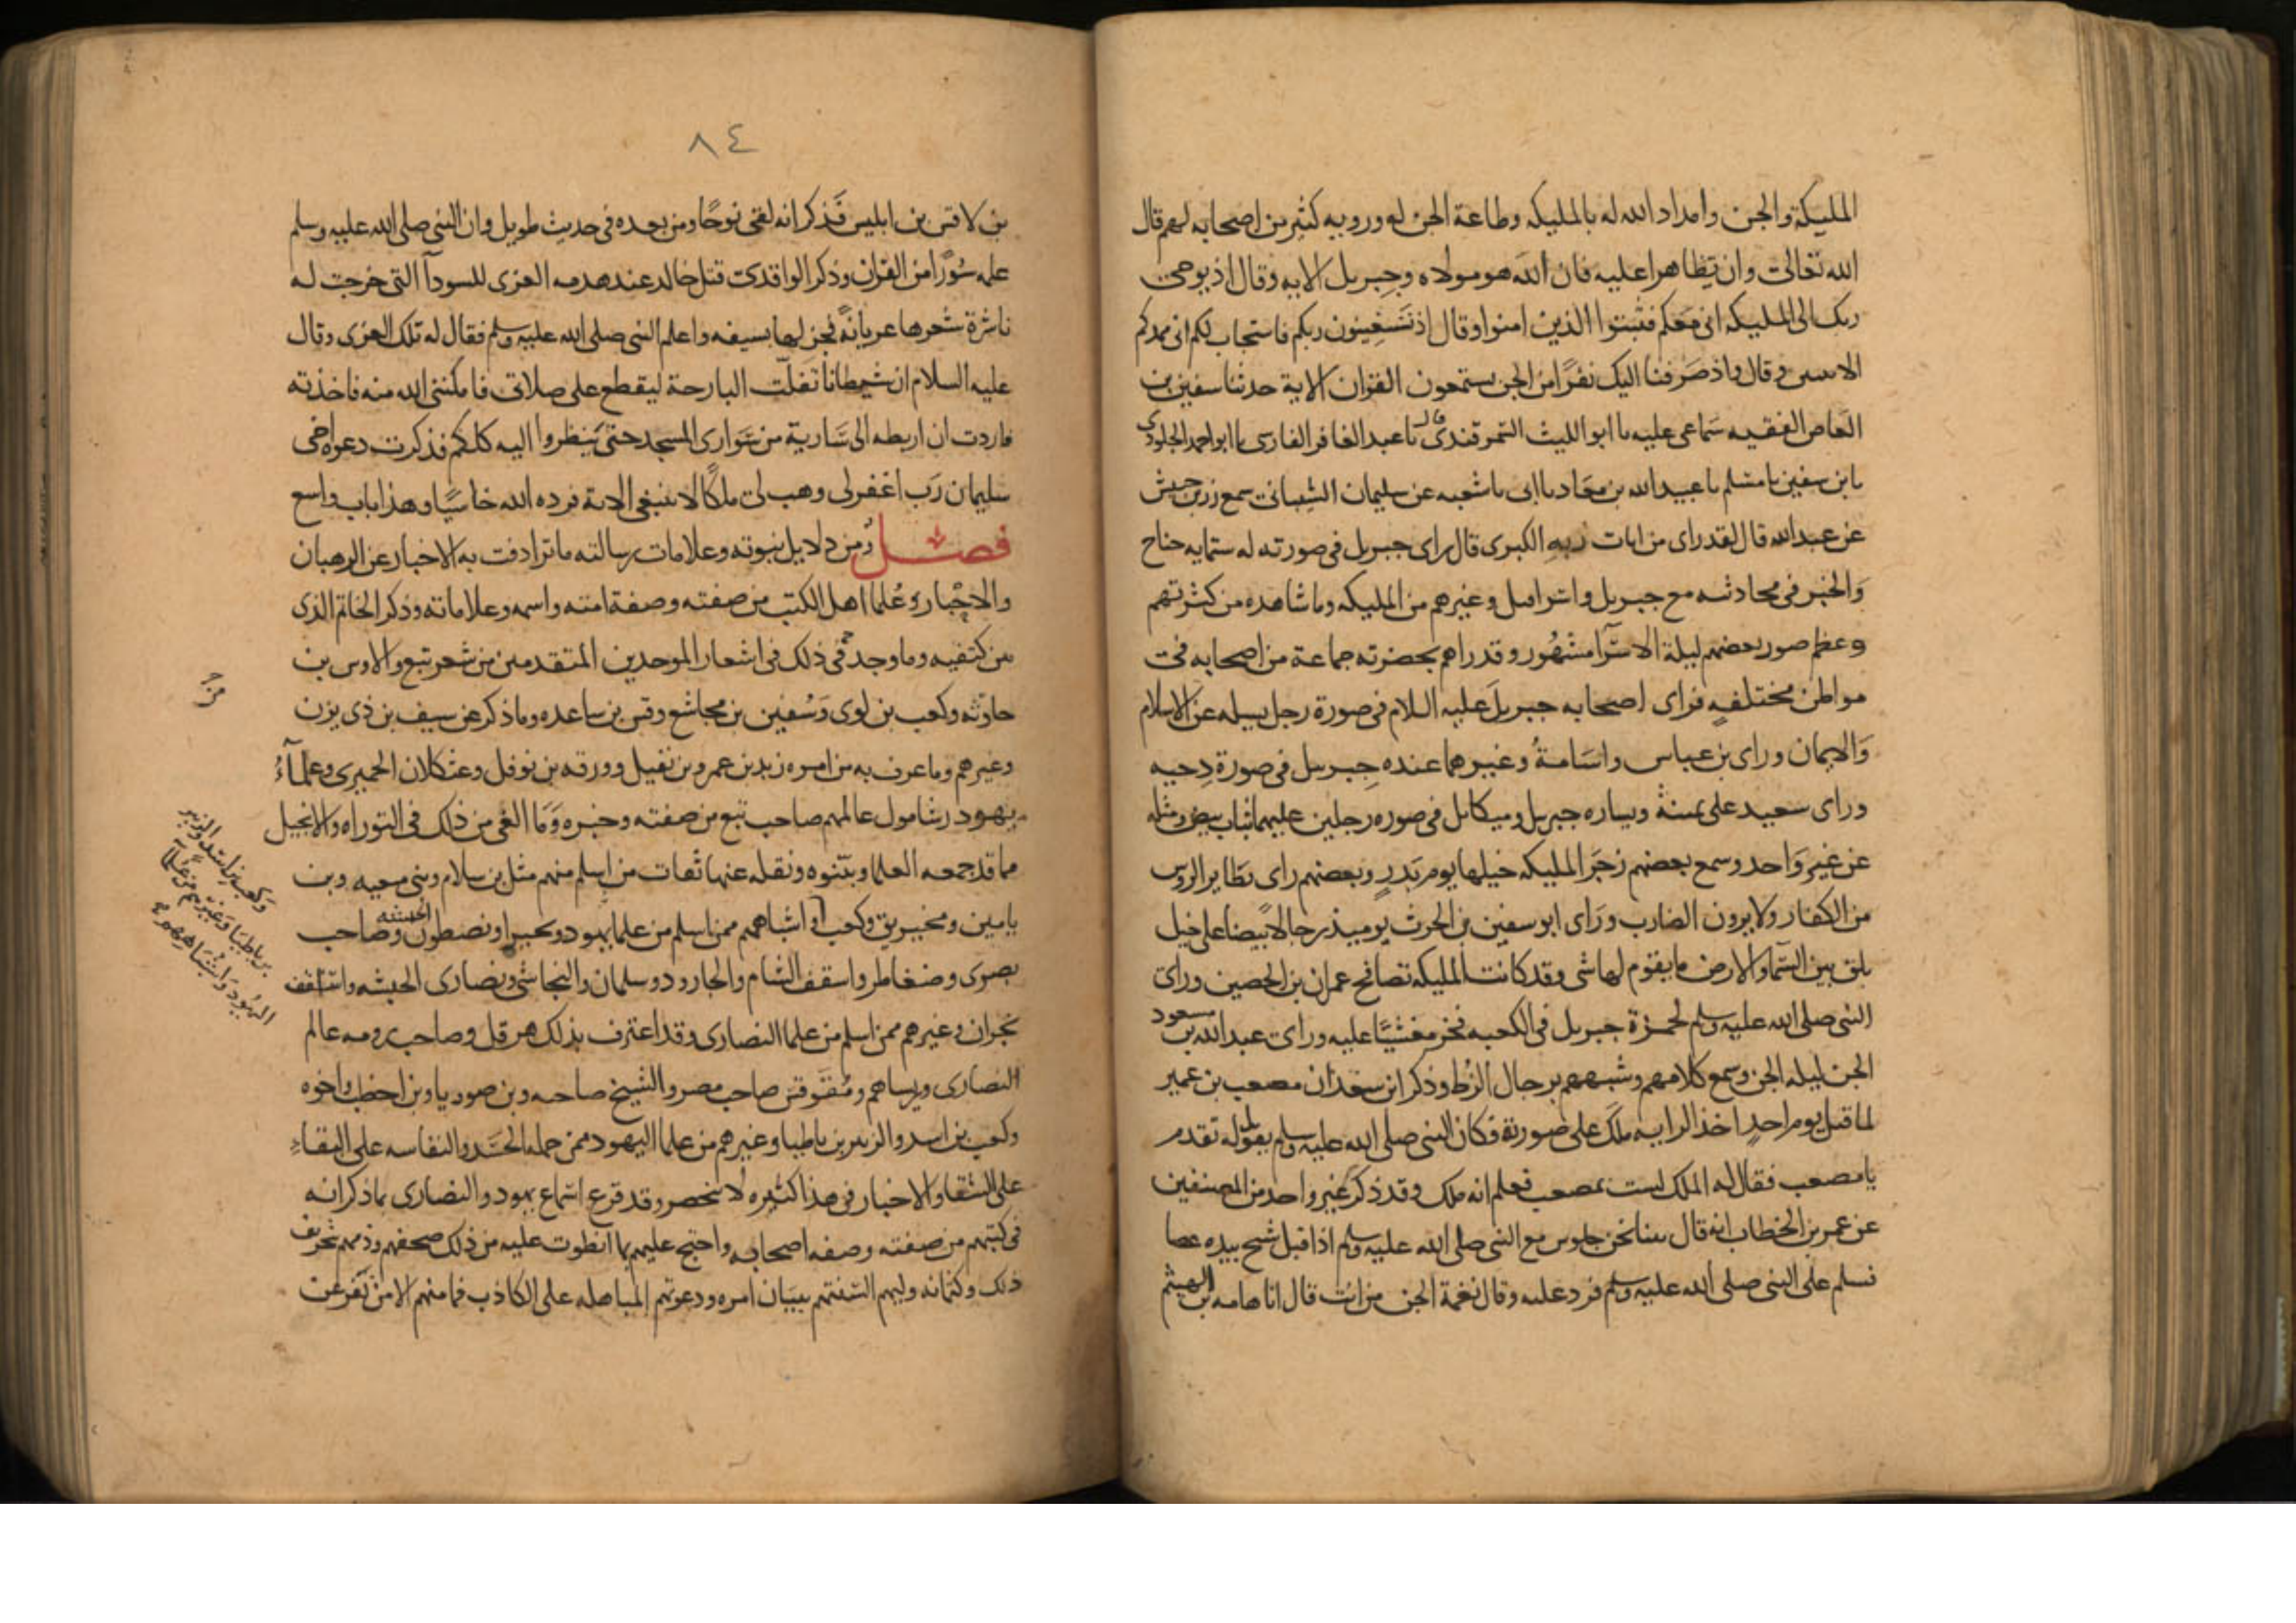 المليكة والجن وامداد الله له بالمليكه وطاعة الجن له ورويه كثير من اصحابه لهم قال
الله تعالى وان تظاهرا عليه فان الله هو مولاه وجبريل الايه وقال اذ يوحى
ربك الى المليكه انى معكم فثبتوا الذين امنوا وقال اذ تستغيثون ربكم فاستجاب لكم انى ممدكم
الاىىىن وقال واذ صرفنا اليك نفرًا من الجن يستمعون القران الاية حدثنا سفين بن
العاص الفقيه سماعى عليه نا ابو الليث السمرقندى قال نا عبد الغافر الفارسى نا ابو احمد الجلودى
نا بن سفين نا مسلم نا عبيد الله بن معاد نا ابى نا شعبه عن سليمان الشيبانى سمع زر بن حبيش
عن عبد الله قال لقد راى من ايات ربه الكبرى قال راى جبريل فى صورته له ستمايه جناح
والخبر فى محادثته مع جبريل واسرافيل وغيرهم من المليكه وما شاهده من كثرتهم
وعظم صور بعضهم ليلة الاسرآ مشهور وقد راهم بحضرته جماعة من اصحابه فى
مواطن مختلفه فراى اصحابه جبريل عليه السلام فى صورة رجل يسله عن الاسلام
والايمان وراى بن عباس واسامة وغيرهما عنده جبريل فى صورة دحيه
وراى سعيد على يمينه ويساره جبريل وميكايل فى صوره رجلين عليهما ثياب بيض ومثله
عن غير واحد وسمع بعضهم زجر المليكه خيلها يوم بدر وبعضهم راى تطاير الروس
من الكفار ولا يرون الضارب وراى ابو سفين بن الحرث يوميذ رجالا بيضا على خيل
بلق بين السما والارض ما يقوم لها شى وقد كانت المليكه تصافح عمران بن الحصين وراى
النبى صلى الله عليه وسلم لحمزة جبريل فى الكعبه فخر مغشيًا عليه وراى عبد الله بن مسعود
الجن ليله الجن وسمع كلامهم وشبههم برجال الزط وذكر ابن سعد ان مصعب بن عمير
لما قتل يوم احد اخذ الرايه ملك على صورته فكان النبى صلى الله عليه وسلم يقول له تقدم
يا مصعب فقال له الملك لست بمصعب فعلم انه ملك وقد ذكر غير واحد من المصنفين
عن عمر بن الخطاب انه قال بينا نحن جلوس مع النبى صلى الله عليه وسلم اذ اقبل شيخ بيده عصا
فسلم على النبى صلى الله عليه وسلم فرد عليه وقال نغمة الجن من انت قال انا هامه بن الهيثم
٨٤
بن لاقس بن ابليس فذكر انه لقى نوحًا ومن بعده فى حديث طويل وان النبى صلى الله عليه وسلم
علمه سورًا من القران وذكر الواقدى قتل خالد عند هدمه العزى للسودآ التى خرجت له
ناشرة شعرها عريانة فجزلها بسيفه واعلم النبى صلى الله عليه وسلم فقال له تلك العزى وقال
عليه السلام ان شيطانا تفلت البارحة ليقطع على صلاتى فامكننى الله منه فاخذته
فاردت ان اربطه الى سارية من سوارى المسجد حتى تنظروا اليه كلكم فذكرت دعوه اخى
سليمان رب اغفر لى وهب لى ملكًا لا ينبغى الاية فرده الله خاسيًا وهذا باب واسع
فصل ومن دلايل نبوته وعلامات رسالته ما ترادفت به الاخبار عن الرهبان
والاحبار وعلما اهل الكتب من صفته وصفة امته واسمه وعلاماته وذكر الخاتم الذى
بين كتفيه وما وجد فى ذلك فى اشعار الموحدين المتقدمين من شعر تبع والاوس بن
حارثه وكعب بن لوى وسفين بن مجاشع وقس بن ساعده وما ذكر عن سيف بن ذى يزن
وغيرهم وما عرف به من امره زيد بن عمرو بن نفيل وورقه بن نوفل وعثكلان الحميرى وعلمآء
يهود وشامول عالمهم صاحب تبع من صفته وخبره وما الفى من ذلك فى التوراه والانجيل
مما قد جمعه العلما وبينوه ونقله عنها ثقات من اسلم منهم مثل بن سلام وبنى سعيه وبن
يامين ومخيريق وكعب واشباههم ممن اسلم من علما يهود وبحيرا ونصطور الحبشه وصاحب
بصرى وضغاطر واسقف الشام والجارود وسلمان والنجاشى ونصارى الحبشه واساقف
نجران وغيرهم ممن اسلم من علما النصارى وقد اعترف بذلك هرقل وصاحب رومه عالما
النصارى ورييساهم ومقوقس صاحب مصر والشيخ صاحبه وبن صوريا وبن اخطب واخوه
وكعب بن اسد والزبير بن باطيا وغيرهم من علما اليهود ممن حمله الحسد والنفاسه على البقاء
على الشقا والاخبار فى هذا كثيره لا تنحصر وقد قرع اسماع يهود والنصارى بما ذكر انه
فى كتبهم من صفته وصفه اصحابه واحتج عليهم بما انطوت عليه من ذلك صحفهم وذمهم بتحريف
ذلك وكتمانه وليهم السنتهم ببيان امره ودعوتهم المباهله على الكاذب فما منهم الا من نفر عن
وكعب بن اسد والزبير
بن باطيا وغيرهم من علما
اليهود واشباههم